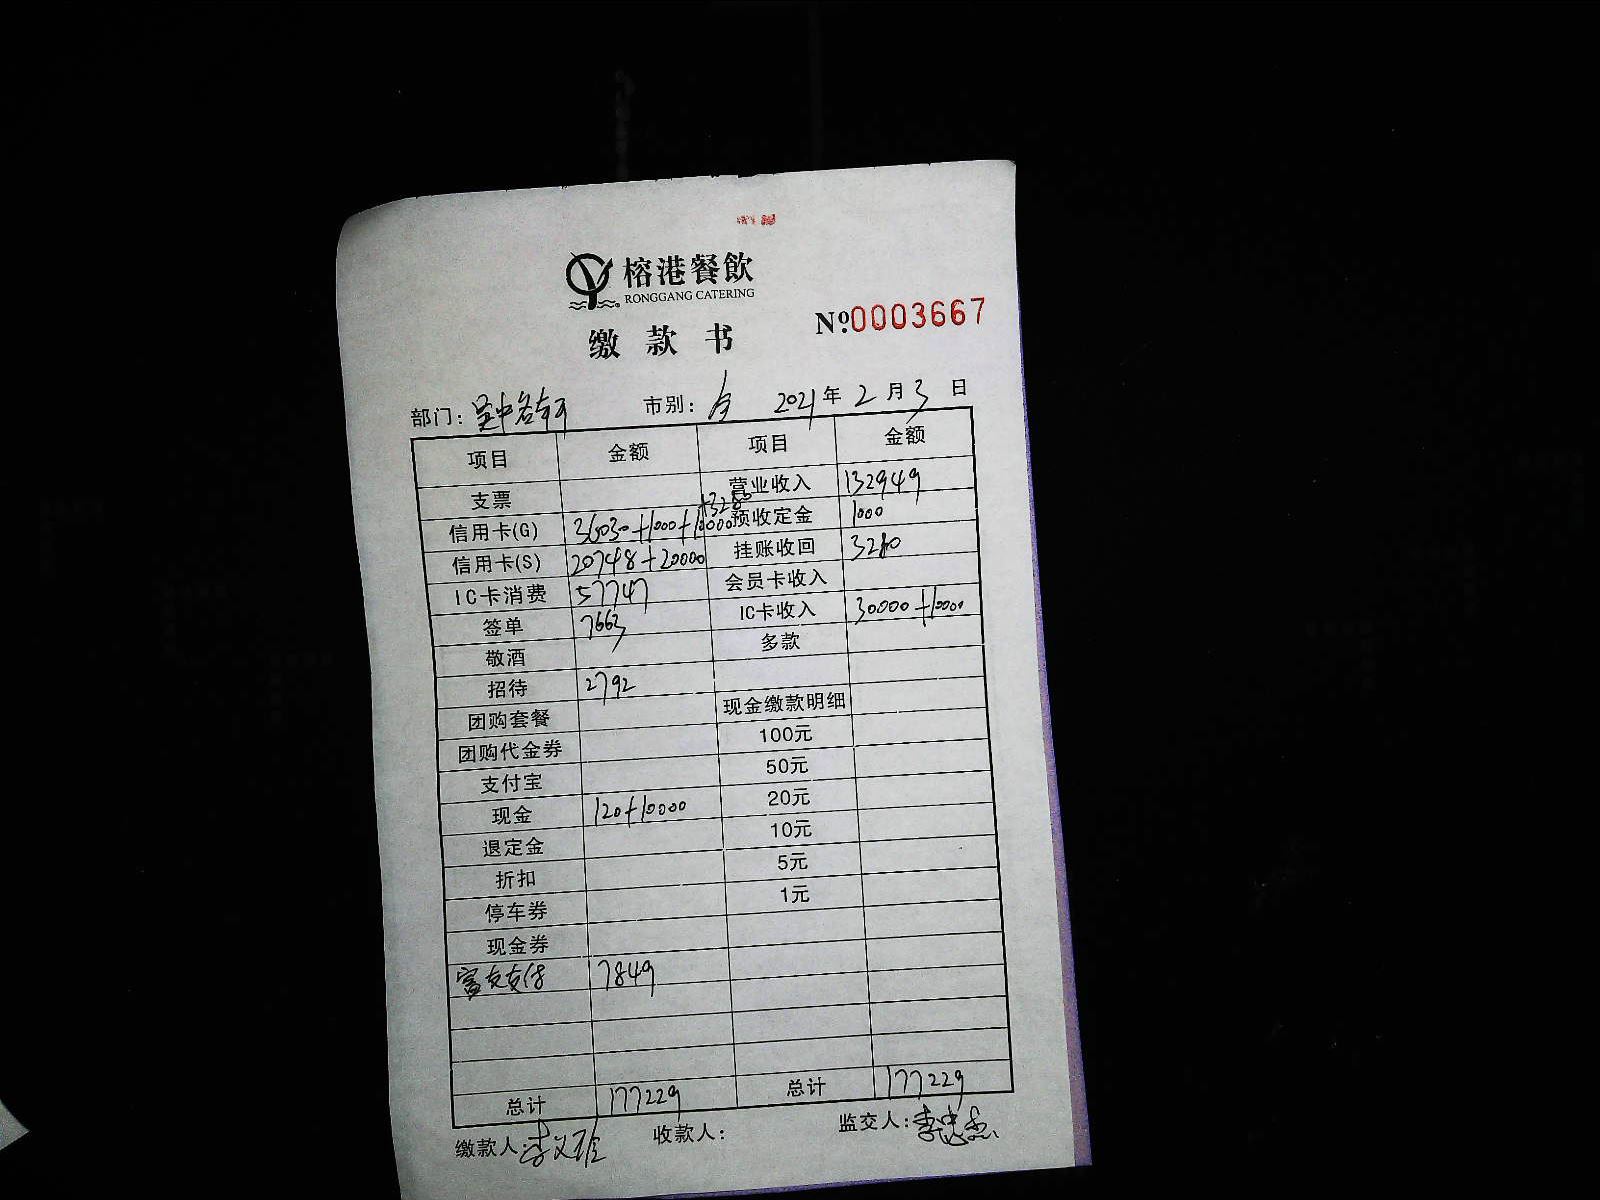 榕港餐飲
RONGGANG CATERING
缴款书 №:0003667
部门: 吴中名轩 市别: 2021年2月3日
项目 金额 项目 金额
支票 营业收入 132949
信用卡(G) 36030+1000+10000+3280 预收定金 1000
信用卡(S) 20748+20000 挂账收回 3280
IC卡消费 57747 会员卡收入
签单 7663 IC卡收入 30000+10000
敬酒 多款
招待 2792
团购套餐 现金缴款明细
团购代金券 100元
支付宝 50元
现金 120+10000 20元
退定金 10元
折扣 5元
停车券 1元
现金券
富友支付 7849
总计 177229 总计 177229
缴款人: 李文 收款人: 监交人: 李忠